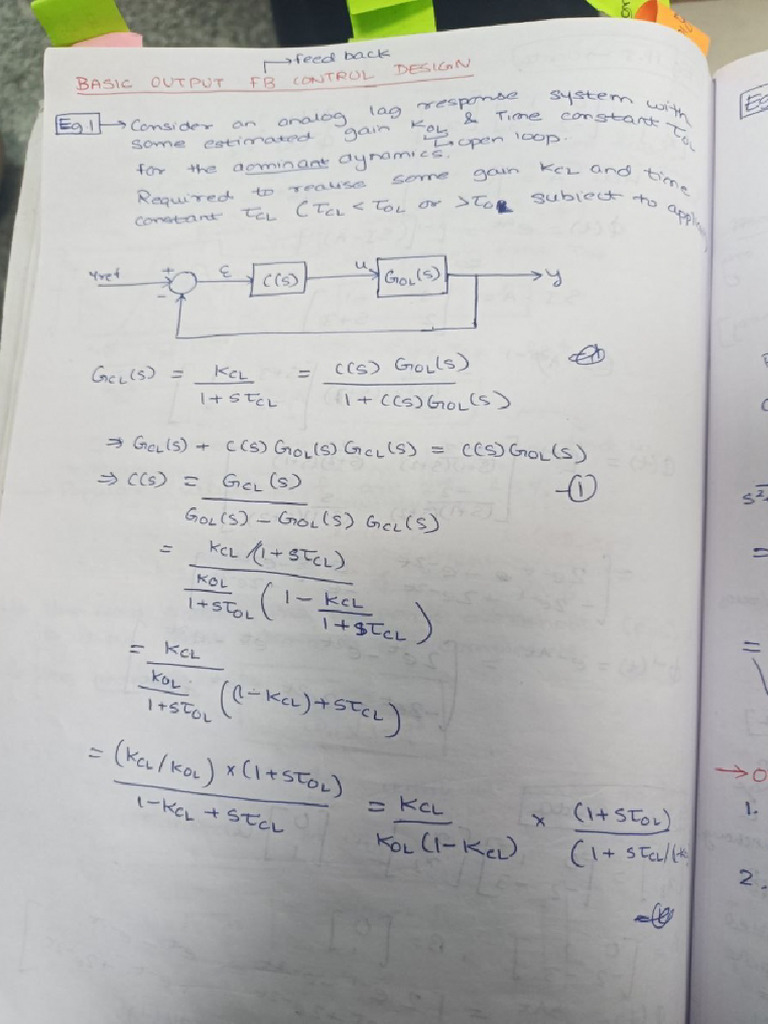 feedback
BASIC OUTPUT FB CONTROL DESIGN
Eg.1 → Consider an analog lag response system with
some estimated gain K_OL & Time constant τ_OL
open loop.
for the dominant dynamics.
Required to realise some gain K_CL and time
constant τ_CL (τ_CL < τ_OL or > τ_OL subject to
Yref + - ε C(S) u G_OL(S) y
G_CL(S) = K_CL / (1 + Sτ_CL) = C(S) G_OL(S) / (1 + C(S) G_OL(S))
⇒ G_CL(S) + C(S) G_OL(S) G_CL(S) = C(S) G_OL(S)
⇒ C(S) = G_CL(S) / (G_OL(S) - G_OL(S) G_CL(S)) -①
= K_CL / (1 + Sτ_CL) / (K_OL / (1 + Sτ_OL) (1 - K_CL / (1 + Sτ_CL)))
= K_CL / (K_OL / (1 + Sτ_OL) ((1 - K_CL) + Sτ_CL))
= (K_CL / K_OL) × (1 + Sτ_OL) / (1 - K_CL + Sτ_CL) = K_CL / (K_OL (1 - K_CL)) × (1 + Sτ_OL) / (1 + Sτ_CL / (1-K
Eg
S²
=
=
→ O
1.
2.